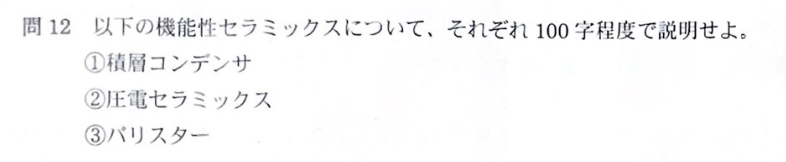 問 12　以下の機能性セラミックスについて、それぞれ 100 字程度で説明せよ。
①積層コンデンサ
②圧電セラミックス
③バリスター